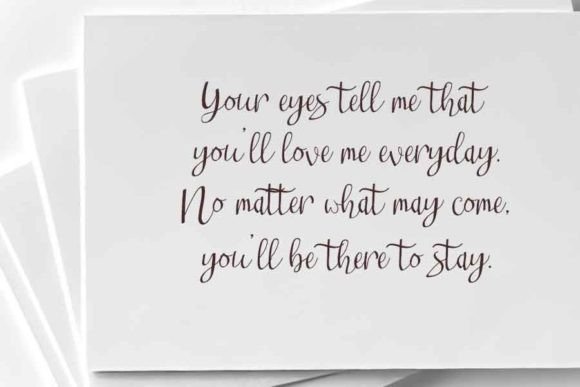 Your eyes tell me that
you'll love me everyday.
No matter what may come,
you'll be there to stay.